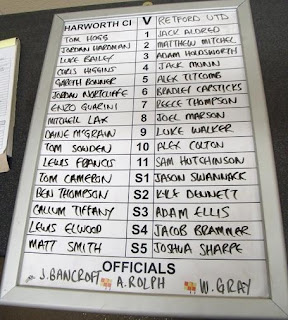 HARWORTH CI V RETFORD UTD
TOM HOGG 1 JACK ALDRED
JORDAN HARDMAN 2 MATTHEW MITCHEL
LUKE BAILEY 3 ADAM HOLDSWORTH
CURTIS HIGGINS 4 JACK MUNN
GARETH BONNER 5 ALEX TITCOMB
JORDAN NORTCLIFFE 6 BRADLEY CARSTICKS
ENZO GUARINI 7 REECE THOMPSON
MITCHELL LAX 8 JOEL MARSON
DAINE McGRAIN 9 LUKE WALKER
TOM SOWDEN 10 ALEX COLTON
LEWIS FRANCIS 11 SAM HUTCHINSON
TOM CAMERON S1 JASON SWANNACK
BEN THOMPSON S2 KYLE DENNETT
CALLUM TIFFANY S3 ADAM ELLIS
LEWIS ELWOOD S4 JACOB BRAMMER
MATT SMITH S5 JOSHUA SHARPE
OFFICIALS
J. BANCROFT A. ROLPH W. GRAY